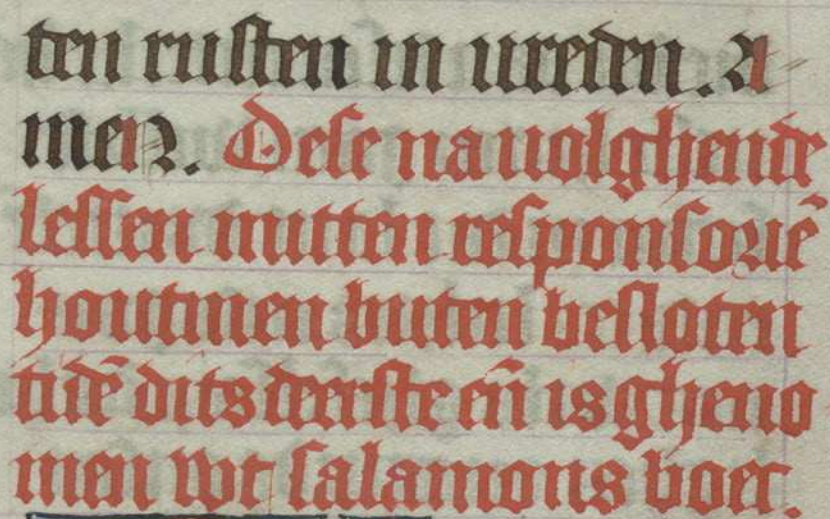 ten rusten in ureden. A
men. Dese na uolghende
lessen mitten responsoriē
houtmen buten besloten
tidē dits deerste eñ is gheno
men wt salamons boec.